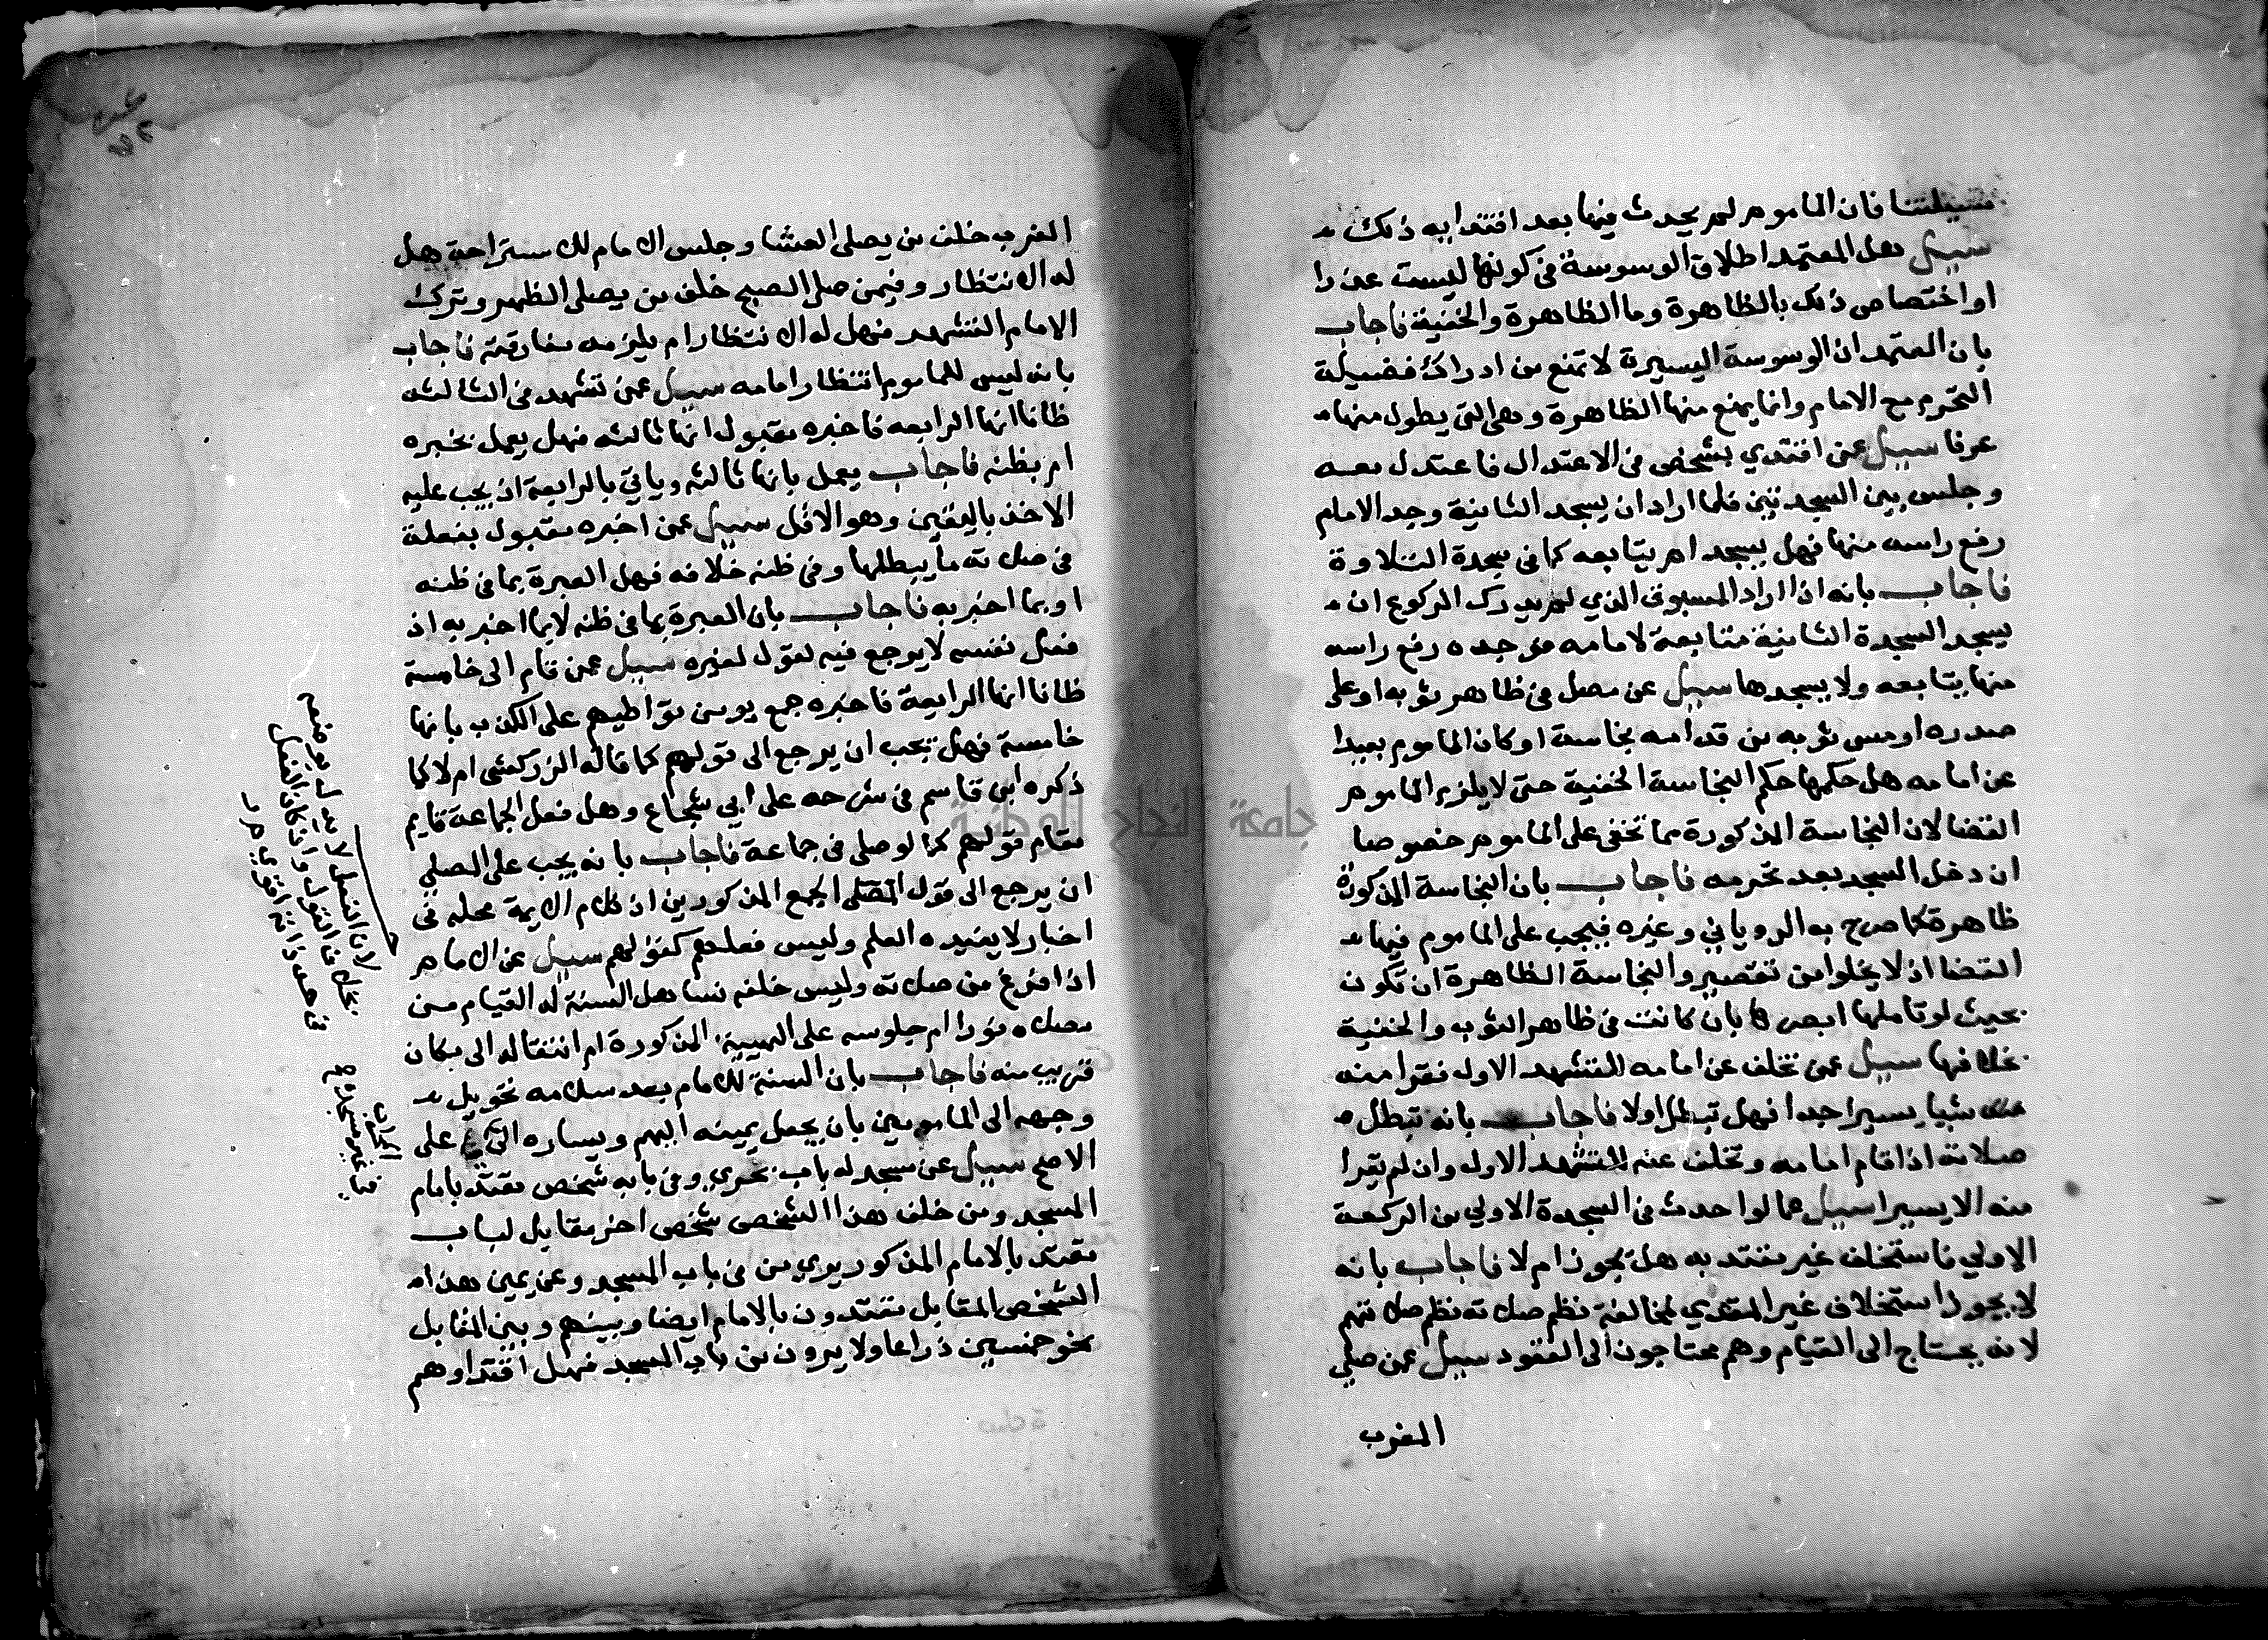 مسيلتنا فان الماموم لم يحدث فيها بعد اقتدايه ذلك
سيل هل المعتمد اطلاق الوسوسة في كونها ليست عذرا
او اختصاص ذلك بالظاهرة وما الظاهرة والخفية فاجاب
بان المعتمد ان الوسوسة اليسيرة لا تمنع من ادراك فضيلة
التحرم مع الامام وانما يمنع منها الظاهرة وهي التي يطول منها
عرفا سيل عمن اقتدي بشخص في الاعتدال فاعتدل معه
وجلس بين السجدتين فلما اراد ان يسجد الثانية وجد الامام
رفع راسه منها فهل يسجد ام يتابعه كما في سجدة التلاوة
فاجاب بانه اذا اراد المسبوق الذي لم يدرك الركوع ان
يسجد السجدة الثانية متابعة لامامه فوجده رفع راسه
منها يتابعه ولا يسجدها سيل عن مصل في ظاهر ثوبه او على
صدره او مس ثوبه من قدامه نجاسة او كان الماموم بعيدا
عن امامه هل حكمها حكم النجاسة الخفية حتى لا يلزم الماموم
القضا لان النجاسة المذكورة مما تخفى على الماموم خصوصا
ان دخل المسجد بعد تحرمه فاجاب بان النجاسة المذكورة
ظاهرة كما صرح به الروياني وغيره فيجب على الماموم فيها
القضا اذ لا يخلوا من تقصير والنجاسة الظاهرة ان تكون
بحيث لو تاملها ابصرها بان كانت في ظاهر الثوب والخفية
بخلافها سيل عمن تخلف عن امامه للتشهد الاول فقرا منه
شيا يسيرا جدا فهل تبطل اولا فاجاب بانه تبطل
صلاته اذا قام امامه وتخلف عنه للتشهد الاول وان لم يقرا
منه الا يسيرا سيل عما لوا حدث في السجدة الاولي من الركعة
الاولي فاستخلف غير مقتد به هل يجوز ام لا فاجاب بانه
لا يجوز استخلاف غير المقتدي لمخالفة نظم صلاته نظم صلاتهم
لانه يحتاج الى القيام وهم محتاجون الى القعود سيل عمن صلي
المغرب
المغرب خلف من يصلي العشا وجلس الامام للاستراحة هل
له الانتظار وفيمن صلى الصبح خلف من يصلى الظهر وترك
الامام التشهد فهل له الانتظار ام يلزمه مفارقته فاجاب
بانه ليس للماموم انتظار امامه سيل عمن تشهد في الثالثة
ظانا انها الرابعه فاخبره مقبول انها ثالثه فهل يعمل بخبره
ام بظنه فاجاب يعمل بانها ثالثه وياتي بالرابعة اذ يجب عليه
الاخذ باليقين وهو الاقل سيل عمن اخبره مقبول بفعله
في صلاته ما يبطلها وفي ظنه خلافه فهل العبرة بما في ظنه
او بما اخبر به فاجاب بان العبرة بما في ظنه لا بما اخبر به اذ
فعل نفسه لا يرجع فيه لقول لغيره سيل عمن قام الى خامسة
ظانا انها الرابعة فاخبره جمع يومن تواطيهم على الكذب بانها
خامسة فهل يجب ان يرجع الى قولهم كما قاله الزركشي ام لا كما
ذكره ابن قاسم في شرحه على ابي شجاع وهل فعل الجماعة قايم
مقام قولهم كما لو صلى في جماعة فاجاب بانه يجب على المصلي
ان يرجع الى قول المصلى الجمع المذكورين اذ كلام الايمة محله في
اخبار لا يفيده العلم وليس فعلهم كقولهم سيل عن الامام
اذا فرغ من صلاته وليس خلفه نسا هل السنة له القيام من
مصلاه فورا ام جلوسه على الهيية المذكورة ام انتقاله الى مكان
قريب منه فاجاب بان السنة للامام بعد سلامه تحويل
وجهه الى المامومين بان يجعل يمينه اليهم ويساره الى على
الاصح سيل عن مسجد له باب بحري وفي بابه شخص مقتد بامام
المسجد ومن خلف هذا الشخص شخص اخر مقابل لباب
مقتد بالامام المذكور يري من في باب المسجد وعن يمين هذا
الشخص المقابل مقتدون بالامام ايضا وبينهم وبين المقابل
نحو خمسين ذراعا ولا يرون من باب المسجد فهل اقتداوهم
لان الفعل لا يدل بوضعه
بخلاف القول وان كان الفعل
في هذا اقوي